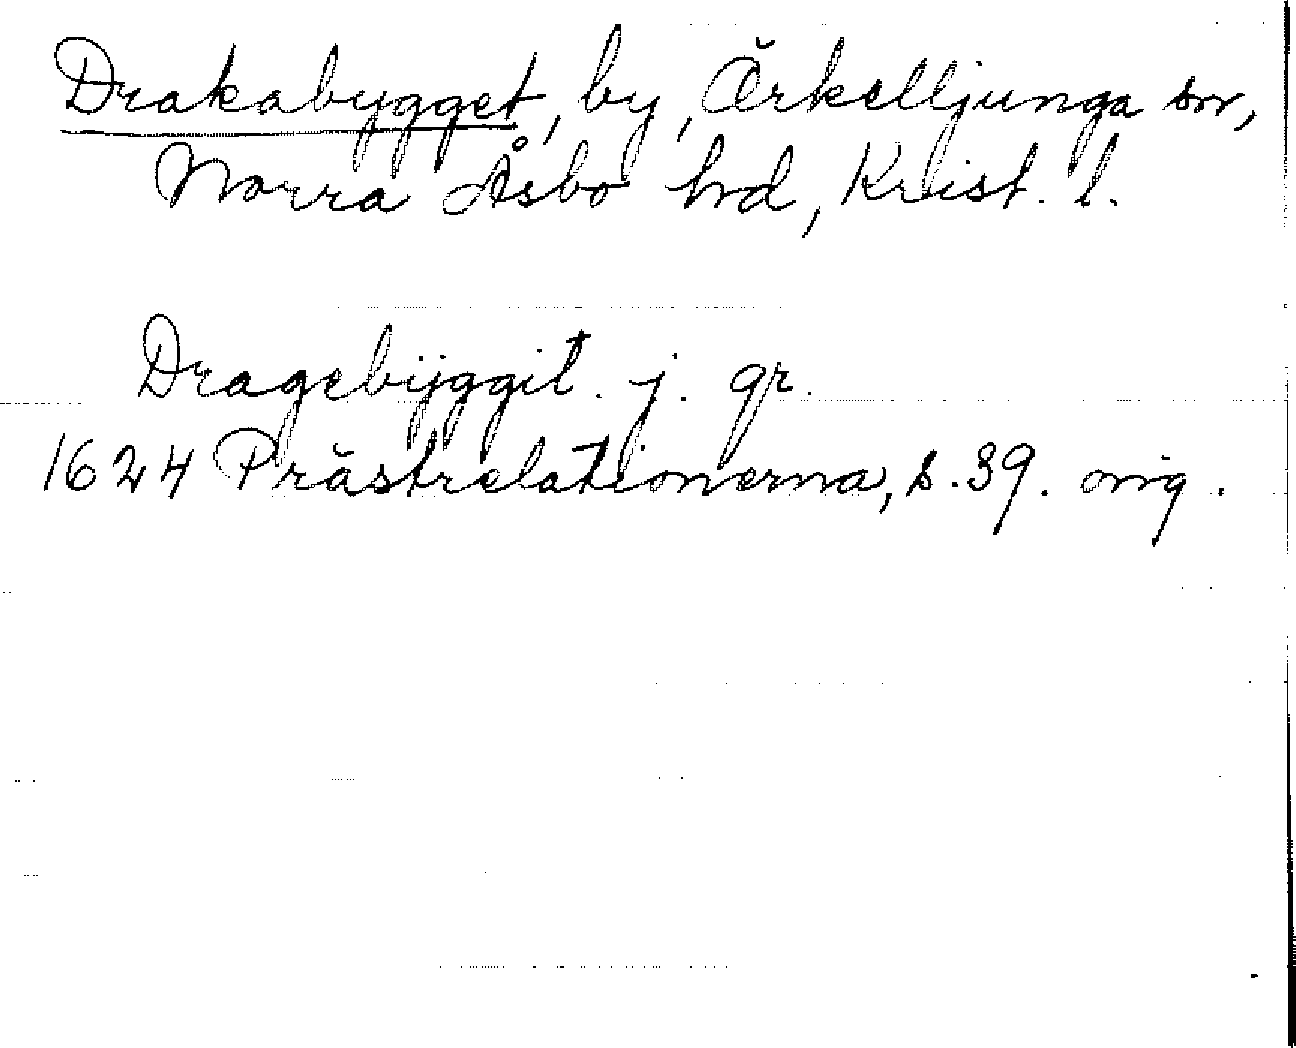 Drakabygget, by, Örkelljunga sn,
Norra Åsbo hd, Krist. l.
Dragebÿggit. j. gr.
1624 Prästrelationerna, s. 39. orig.